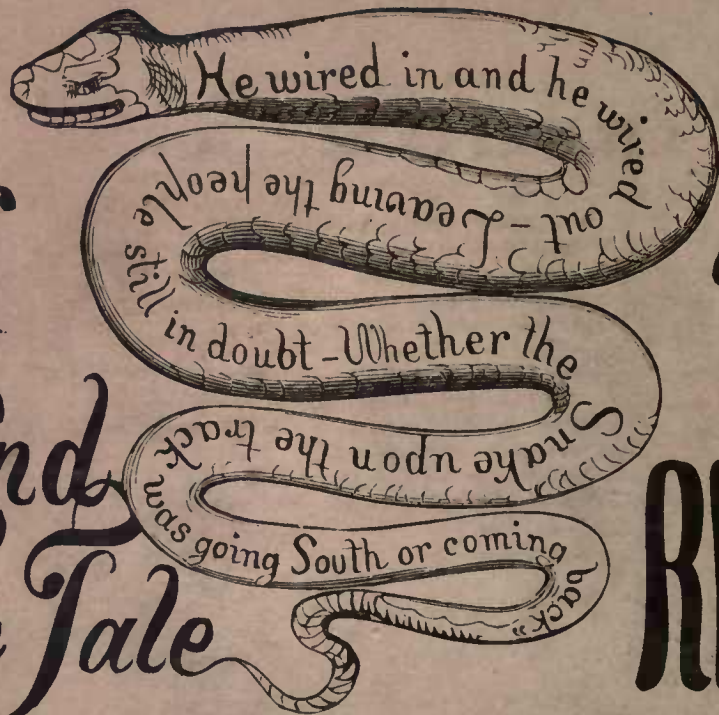 He wired in and he wired
out - Leaving the people
still in doubt - Whether the
Snake upon the track
was going South or coming
back"
Tale